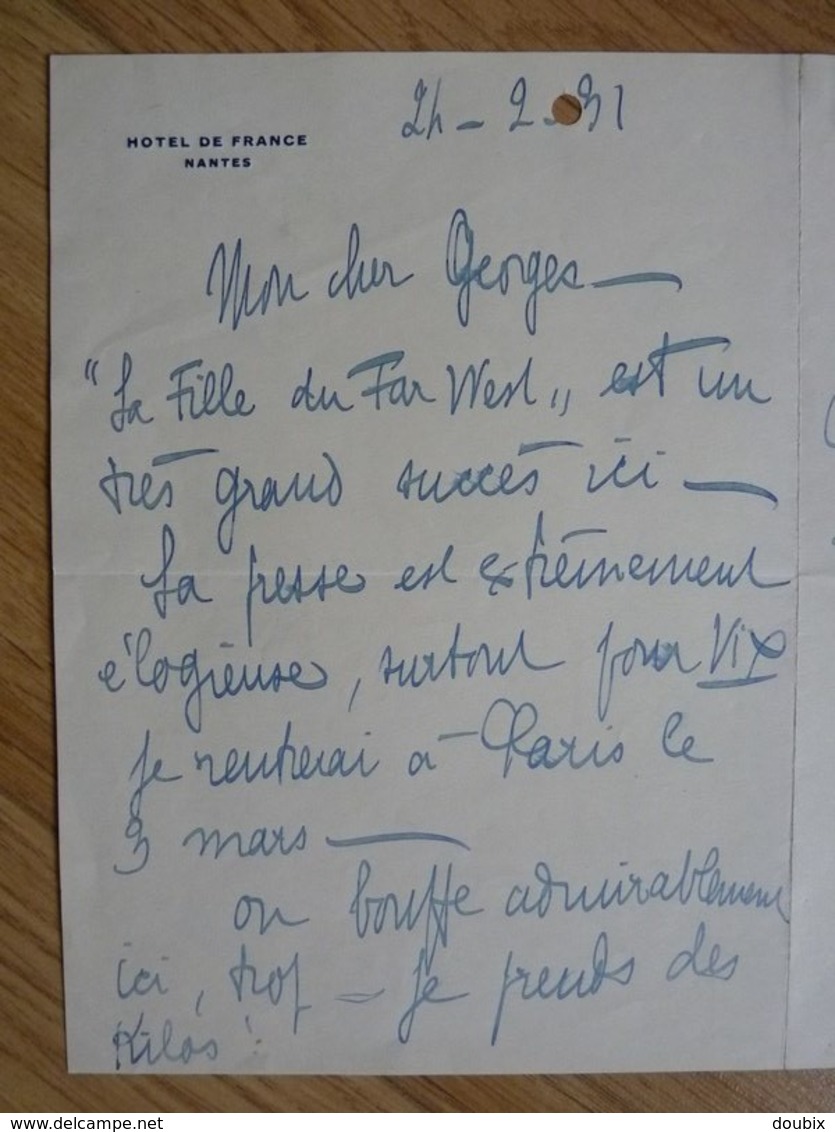 HOTEL DE FRANCE
NANTES
24 - 2 - 31
Mon cher Georges —
"La Fille du Far West" est un
très grand succès ici —
La presse est extrêmement
élogieuse, surtout pour Vix
je rentrerai à Paris le
3 mars —
on bouffe admirablement
ici, trop — je prends des
Kilos !
delcampe.net
doubix